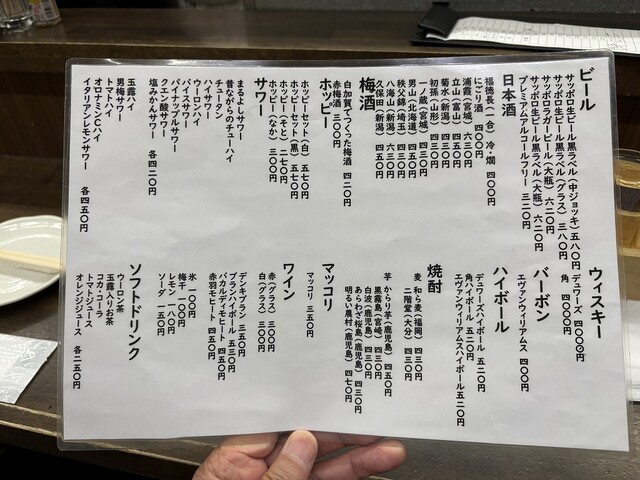 ビール
サッポロ生ビール黒ラベル(中ジョッキ)五八〇円
サッポロ生ビール黒ラベル(グラス)三八〇円
サッポロラガービール(大瓶)六二〇円
サッポロ生ビール黒ラベル(大瓶)六二〇円
プレミアムアルコールフリー 三二〇円
日本酒
福徳長(一合)冷・燗 四〇〇円
にごり酒 四〇〇円
浦霞(宮城)六三〇円
立山(富山)四五〇円
菊水(新潟)四三〇円
初孫(山形)四三〇円
一ノ蔵(宮城)四三〇円
男山(北海道)四五〇円
秩父錦(埼玉)四三〇円
八海山(新潟)六三〇円
久保田(新潟)四五〇円
梅酒
白加賀でつくった梅酒 四二〇円
赤梅酒 三〇〇円
ホッピー
ホッピーセット(白)五七〇円
ホッピーセット(黒)五七〇円
ホッピー(そと)二七〇円
ホッピー(なか)三〇〇円
サワー
まるよしサワー
昔ながらのチューハイ
チュータン
ハイサワー
ウーロンハイ
バイスサワー
パイナップルサワー
クエン酸サワー
塩みかんサワー 各四二〇円
玉露ハイ
男梅サワー
トマトハイ
オロナミンCハイ
イタリアンレモンサワー 各四五〇円
ウィスキー
デュワーズ 四〇〇〇円
角 四〇〇〇円
バーボン
エヴァンウィリアムス 四〇〇円
ハイボール
デュワーズハイボール 五二〇円
角ハイボール 五二〇円
エヴァンウィリアムスハイボール五二〇円
焼酎
麦 和ら麦(福岡)四三〇円
二階堂(大分)四三〇円
芋 からり芋(鹿児島)四五〇円
黒霧島(宮崎)四三〇円
白波(鹿児島)四三〇円
あらわざ桜島(鹿児島)四三〇円
明るい農村(鹿児島)四七〇円
マッコリ
マッコリ 三五〇円
ワイン
赤(グラス)三〇〇円
白(グラス)三〇〇円
デンキブラン 三五〇円
ブランハイボール 五三〇円
バカルディモヒート 四五〇円
赤羽モヒート 四五〇円
氷 一〇〇円
梅干 一〇〇円
レモン 一八〇円
ソーダ 一五〇円
ソフトドリンク
ウーロン茶
玉露入りお茶
コカ・コーラ
トマトジュース
オレンジジュース 各二五〇円